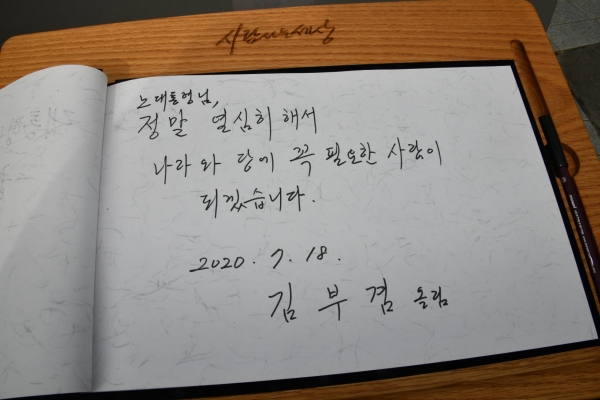 사람사는세상
노대통령님,
정말 열심히 해서
나라와 당에 꼭 필요한 사람이
되겠습니다.
2020. 7. 18.
김부겸 올림